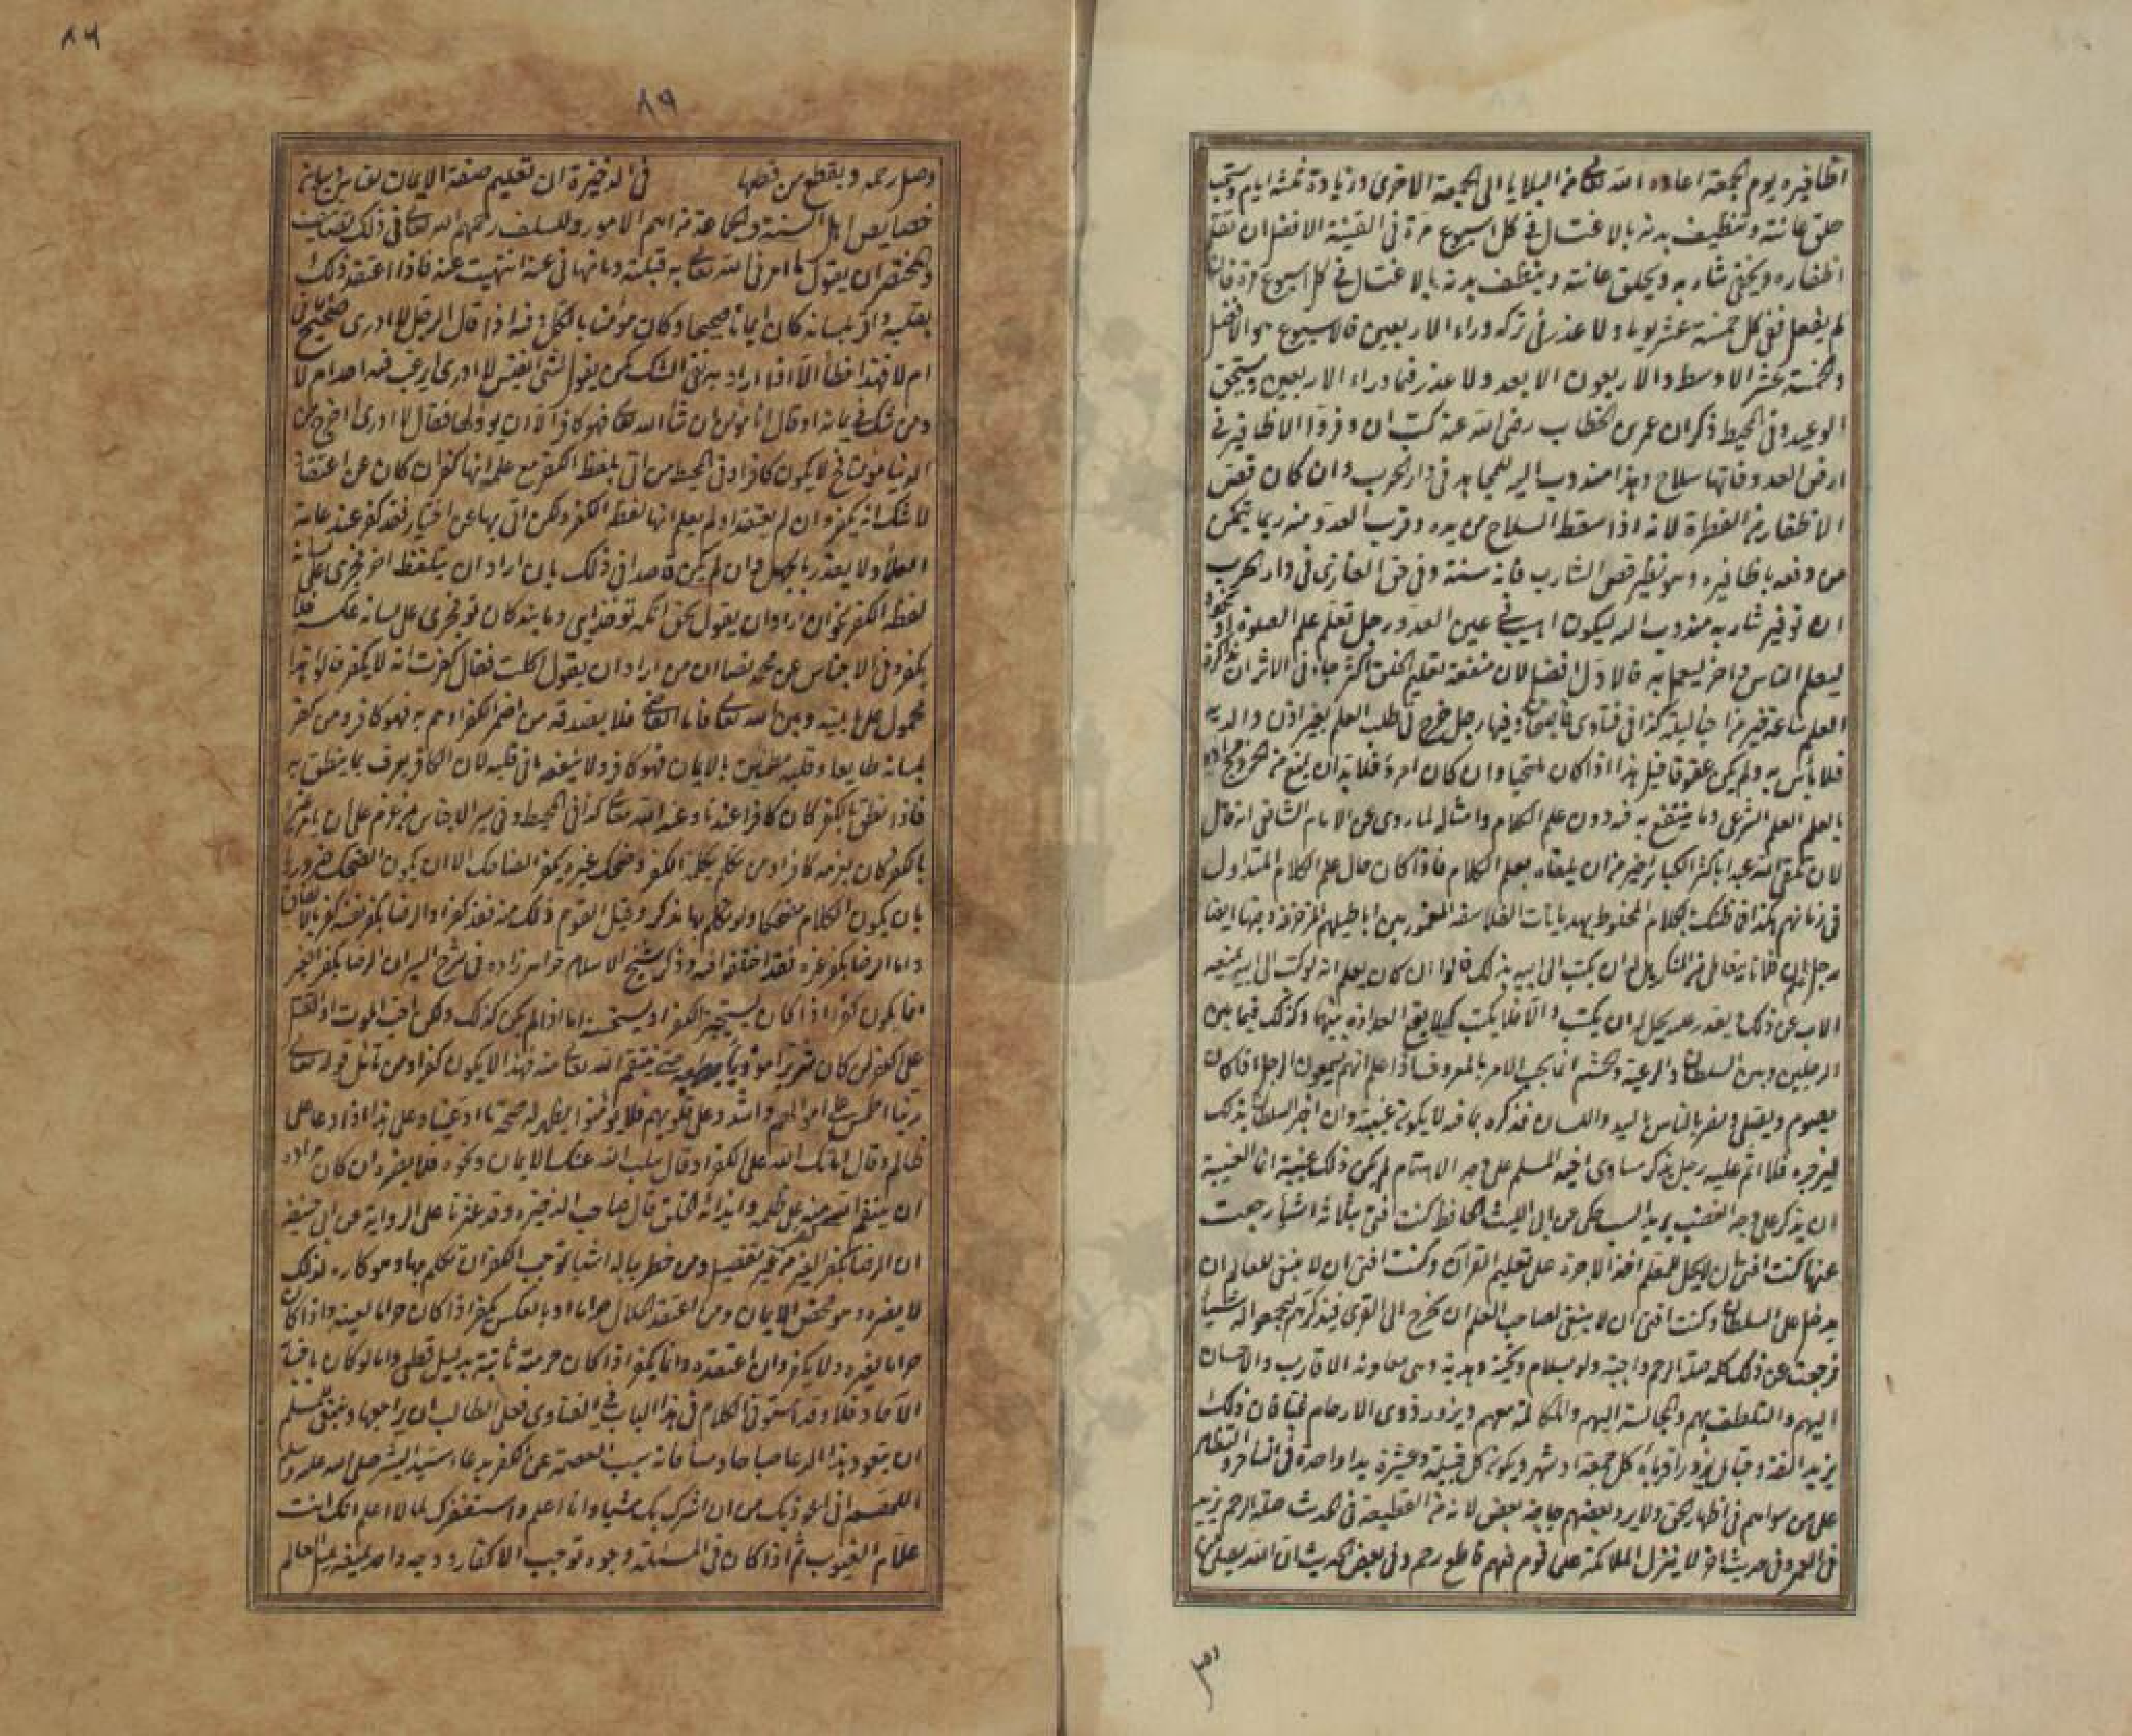 اظافيره يوم الجمعة اعاذه الله تعالى من البلايا الى الجمعة الاخرى وزيادة ثلثة ايام ويستحب
حلق عانته وتنظيف بدنه بالاغتسال في كل اسبوع مرة في القنية الافضل ان يقلم
اظفاره ويحفي شاربه ويحلق عانته وينظف بدنه بالاغتسال في كل اسبوع مرة فان
لم يفعل ففي كل خمسة عشر يوما ولا عذر في تركه وراء الاربعين فالاسبوع هو الافضل
والخمسة عشر الاوسط والاربعون الابعد ولا عذر فيما وراء الاربعين ويستحق
الوعيد وفي المحيط ذكر ان عمر بن الخطاب رضي الله عنه كتب ان وفروا الاظافير في
ارض العدو فانها سلاح وهذا مندوب اليه للمجاهد في دار الحرب وان كان قص
الاظفار من الفطرة لانه اذا سقط السلاح من يده وقرب العدو منه ربما يتمكن
من دفعه باظافيره وهو نظير قص الشارب فانه سنة وفي حق الغازي في دار الحرب
ان توفير شاربه مندوب اليه ليكون اهيب في عين العدو رجل تعلم علم الصلوة او نحوه
ليعلم الناس واخر ليعمل به فالاول افضل لان منفعة تعليم الخلق اكثر جاء في الاثر ان مذاكرة
العلم ساعة خير من احياء ليلة كذا في فتاوى قاضيخان وفيها رجل خرج في طلب العلم بغير اذن والديه
فلا بأس به ولم يكن عقوقا قيل هذا اذا كان ملتحيا وان كان امرد فلابد ان يمنع من الخروج مراده
بالعلم العلم الشرعي وما ينتفع به فيه دون علم الكلام وامثاله لما روي عن الامام الشافعي انه قال
لان يلقى الله عبد باكثر الكبائر خير من ان يلقاه بعلم الكلام فاذا كان حال علم الكلام المتداول
في زمانهم هكذا فما ظنك بالكلام المخلوط بهذيانات الفلاسفة المغمور بين اباطيلهم المزخرفة وفيها ايضا
رجل علم ان فلانا يتعاطى من المنكر هل له ان يكتب الى ابيه بذلك قالوا ان كان يعلم انه لو كتب الى ابيه يمنعه
الاب عن ذلك ويقدر عليه يحل له ان يكتب والا فلا يكتب كيلا يقع العداوة بينهما وكذلك فيما بين
الرجلين وبين السلطان والرعية والحشم انما يجب الامر بالمعروف اذا علم انهم يسمعون الرجل اذا كان
يصوم ويصلي ويضر بالناس باليد واللسان فذكره بما فيه لا يكون غيبة وان اخبر السلطان بذلك
ليزجره فلا اثم عليه رجل يذكر مساوي اخيه المسلم على وجه الاهتمام لم يكن ذلك غيبة انما الغيبة
ان يذكر على وجه الغضب يريد السب حكي عن ابي الليث الحافظ كنت افتي بثلاثة اشياء رجعت
عنها كنت افتي ان لا يحل للمعلم اخذ الاجرة على تعليم القرآن وكنت افتي ان لا ينبغي للعالم ان
يدخل على السلطان وكنت افتي ان لا ينبغي لصاحب العلم ان يخرج الى القرى فيذكرهم ليجمعوا له شيئا
فرجعت عن ذلك كله صلة الرحم واجبة ولو بسلام وتحية وهدية وهي معاونة الاقارب والاحسان
اليهم والتلطف بهم والمجالسة اليهم والمكالمة معهم ويزور ذوي الارحام غبا فان ذلك
يزيد الفة وحبا بل يزور اقرباءه كل جمعة او شهر ويكون كل قبيلة وعشيرة يدا واحدة في التناصر والتظاهر
على من سواهم في اظهار الحق ولا يرد بعضهم حاجة بعض لانه من القطيعة في الحديث صلة الرحم تزيد
في العمر وفي حديث اخر لا ينزل الملائكة على قوم فيهم قاطع رحم وفي بعض الحديث ان الله يصل من
وصل
٨٩
وصل رحمه ويقطع من قطعها في الذخيرة ان تعليم صفة الايمان للناس وبيان
خصايص اهل السنة والجماعة من اهم الامور وللسلف رحمهم الله تعالى في ذلك تصانيف
والمختصر ان يقول ما امرني الله تعالى به قبلته وما نهاني عنه انتهيت عنه فاذا اعتقد ذلك
بقلبه واقر بلسانه كان ايمانا صحيحا وكان مؤمنا بالكل وفيه اذا قال الرجل لا ادري اصحيح ايماني
ام لا فهذا خطأ الا اذا اراد به نفي الشك كمن يقول لشئ نفيس لا ادري ايرغب فيه احد ام لا
ومن شك في ايمانه او قال انا مؤمن ان شاء الله تعالى فهو كافر الا ان يؤولها فقال لا ادري اخرج من
الدنيا مؤمنا فح لا يكون كافرا وفي المحيط من اتى بلفظ الكفر مع علمه انها كفر ان كان عن اعتقاد
لا شك انه يكفر وان لم يعتقد او لم يعلم انها لفظ الكفر ولكن اتى بها عن اختيار فقد كفر عند عامة
العلماء ولا يعذر بالجهل وان لم يكن قاصدا في ذلك بان اراد ان يتلفظ اخر فجرى على لسانه
لفظ الكفر نحو ان اراد ان يقول بحق آنكه تو خدايي وما بندكان تو فجرى على لسانه عكسه فلا
يكفر وفي الاجناس عن محمد نصا ان من اراد ان يقول اكلت فقال كفرت انه لا يكفر قالوا هذا
محمول على ما بينه وبين الله تعالى فاما القاضي فلا يصدقه من اضمر الكفر او هم به فهو كافر ومن كفر
بلسانه طايعا وقلبه مطمئن بالايمان فهو كافر ولا ينفعه ما في قلبه لان الكافر يعرف بما ينطق به
فاذا نطق بالكفر كان كافرا عندنا وعند الله تعالى كذا في المحيط وفي سير الاجناس من عزم على ان يامر غيره
بالكفر كان بعزمه كافرا ومن تكلم بكلمة الكفر وضحك غيره يكفر الضاحك الا ان يكون الضحك ضروريا
بان يكون الكلام مضحكا ولو تكلم بها مذكر وقبل القوم ذلك منه فقد كفروا والرضا بكفر نفسه كفر بالاتفاق
واما الرضا بكفر غيره فقد اختلفوا فيه وذكر شيخ الاسلام خواهر زاده في شرح السير ان الرضا بكفر الغير
انما يكون كفرا اذا كان يستجيز الكفر او يستحسنه اما اذا لم يكن كذلك ولكن احب الموت او القتل
على الكفر لمن كان شريرا موذيا بطبعه حتى ينتقم الله تعالى منه فهذا لا يكون كفرا ومن تأمل قوله تعالى
ربنا اطمس على اموالهم واشدد على قلوبهم فلا يؤمنوا يظهر له صحة ما ادعيناه وعلى هذا اذا دعا على
ظالم وقال اماتك الله على الكفر او قال سلب الله عنك الايمان ونحوه فلا يضره ان كان مراده
ان ينتقم الله تعالى منه على ظلمه وايذائه الخلق قال صاحب الذخيرة وقد عثرنا على الرواية عن ابي حنيفة
ان الرضا بكفر الغير كفر من غير تفصيل ومن خطر بباله اشياء توجب الكفر ان تكلم بها وهو كاره لذلك
لا يضره وهو محض الايمان ومن اعتقد الحلال حراما او بالعكس يكفر اذا كان حراما لعينه واذا كان
حراما لغيره ولا يكفر وان اعتقده وانما يكفر اذا كان حرمته ثابتة بدليل قطعي واما لو كان باخبار
الآحاد فلا وقد استوفي الكلام في هذا الباب في الفتاوى فعلى الطالب ان يراجعها وينبغي للمسلم
ان يتعوذ بهذا الدعاء صباحا ومساء فانه سبب العصمة عن الكفر بدعاء سيد البشر صلى الله عليه وسلم
اللهم اني اعوذ بك من ان اشرك بك شيئا وانا اعلم واستغفرك لما لا اعلم انك انت
علام الغيوب ثم اذا كان في المسئلة وجوه توجب الاكفار ووجه واحد يمنعه يميل العالم